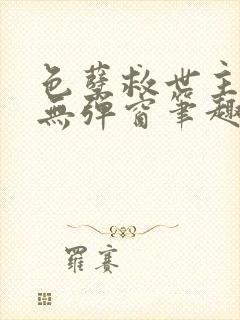 色孽救世主
無彈窗筆趣
羅賽